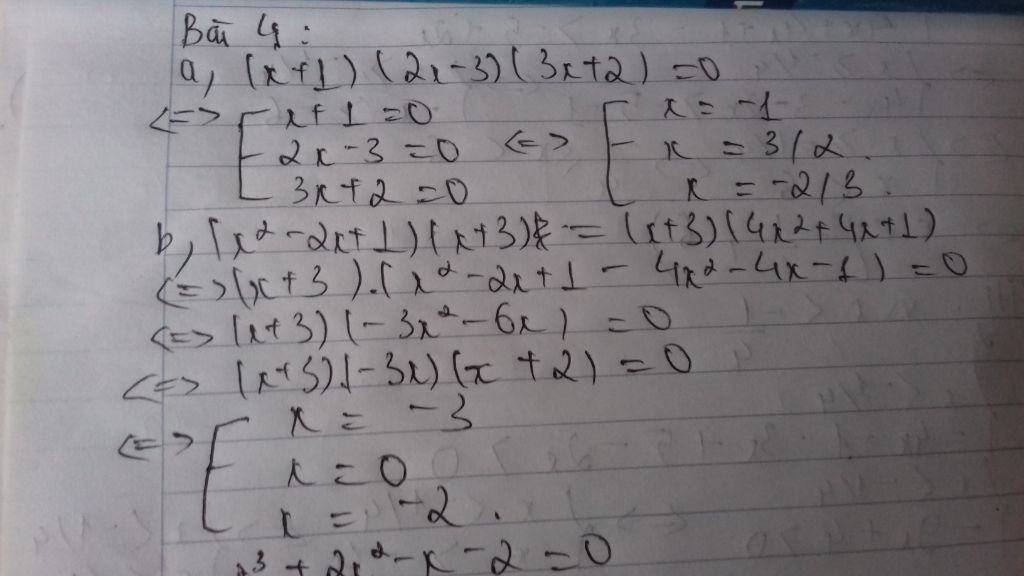 Bài 4:
a, (x+1)(2x-3)(3x+2)=0
<=> [ x+1=0 <=> [ x = -1
2x-3=0 x = 3/2.
3x+2=0 x = -2/3.
b, (x²-2x+1)(x+3) = (x+3)(4x²+4x+1)
<=> (x+3).(x²-2x+1 - 4x²-4x-1) = 0
<=> (x+3)(-3x²-6x) = 0
<=> (x+3)(-3x)(x+2) = 0
<=> [ x = -3
x = 0
x = -2.
x³+2x²-x-2=0